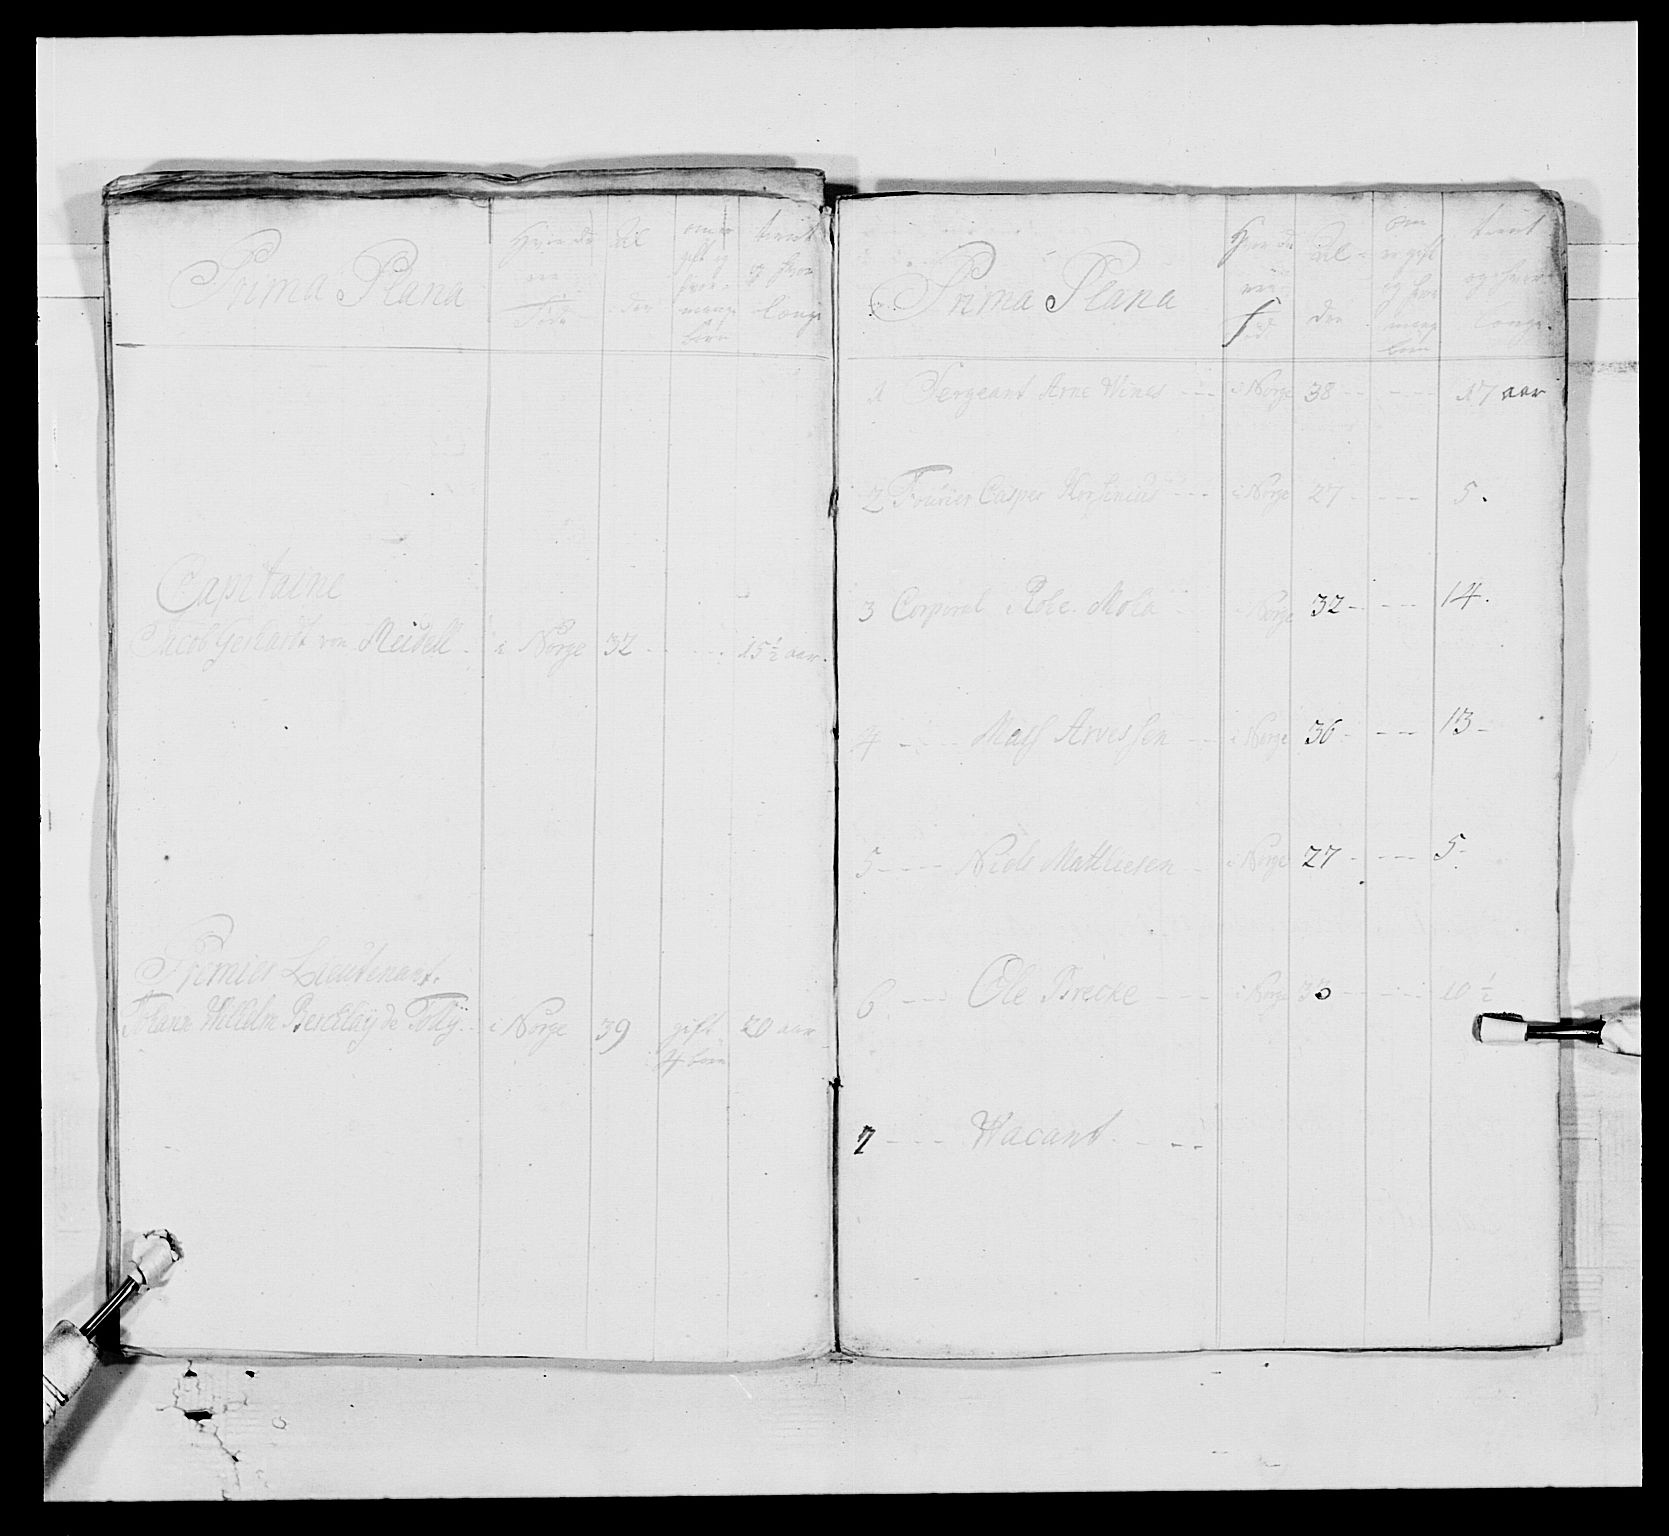 Prima Plana
Hvor de
ere
Føde
Al
der
om er
gift og
hvor
mange
børn
tient
og hvor
længe
Capitaine
Jacob Gerhardt von Meidell
i Norge 32 - - - 15 1/2 aar.
Premier Lieutenant
Johann Wilhelm Berchlaÿ de Tollÿ
i Norge 39 gift 20 aar
4 børn
Prima Plana
Hvor de
ere
fød
Al-
der
om
er gift
og hvor
mang
børn
tient
og hvor
længe.
1 Sergeant Arne Wines - - - i Norge 38 - - - - - 17 aar
2 Fourier Casper - - - i Norge 27 - - - - 5.
3 Corporal Role Mola - i Norge 32 - - - - 14.
4 - - - Mass Arvessen - - i Norge 36 - - - - 13 -
5 - - - Niels Mathiesen - i Norge 27 - - - - 5 -
6 - - - Ole Brecke - - i Norge 30 - - - - 10 1/2
7 - - - Wacant - - - -